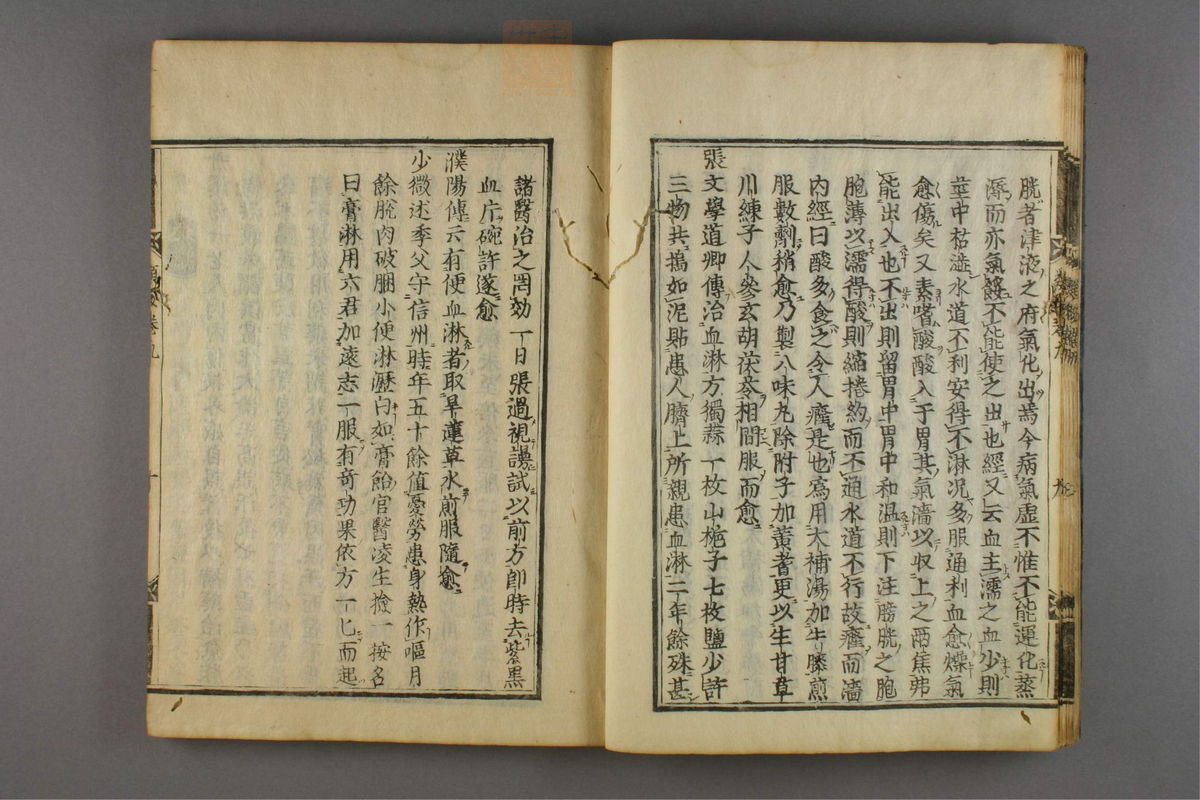 胱者津液之府氣化出焉今病氣虛不惟不能運化蒸
溽而亦氣餒不能使之出也經又云血主濡之血少則
莖中枯澁水道不利安得不淋况多服通利血愈燥氣
愈傷矣又素嗜酸酸入于胃其氣濇以收上之兩焦弗
能出入也不出則留胃中胃中和温則下注膀胱之胞
胞薄以濡得酸則縮捲約而不通水道不行故癃而濇
內經曰酸多食之令人癃是也爲用大補湯加牛膝煎
服數劑稍愈乃製八味丸除附子加黃耆更以生甘草
川練子人參玄胡茯苓相間服而愈
張文學道卿傳治血淋方獨蒜一枚山梔子七枚鹽少許
三物共搗如泥貼患人臍上所親患血淋二年餘殊甚
諸醫治之罔効一日張過視謾試以前方卽時去紫黑
血片碗許遂愈
濮陽傳云有便血淋者取旱蓮草水煎服隨愈
少微述季父守信州時年五十餘値憂勞患身熱作嘔月
餘脫肉破䐃小便淋瀝白如膏飴官醫凌生撿一按名
曰膏淋用六君加遠志一服有奇功果依方一匕而起